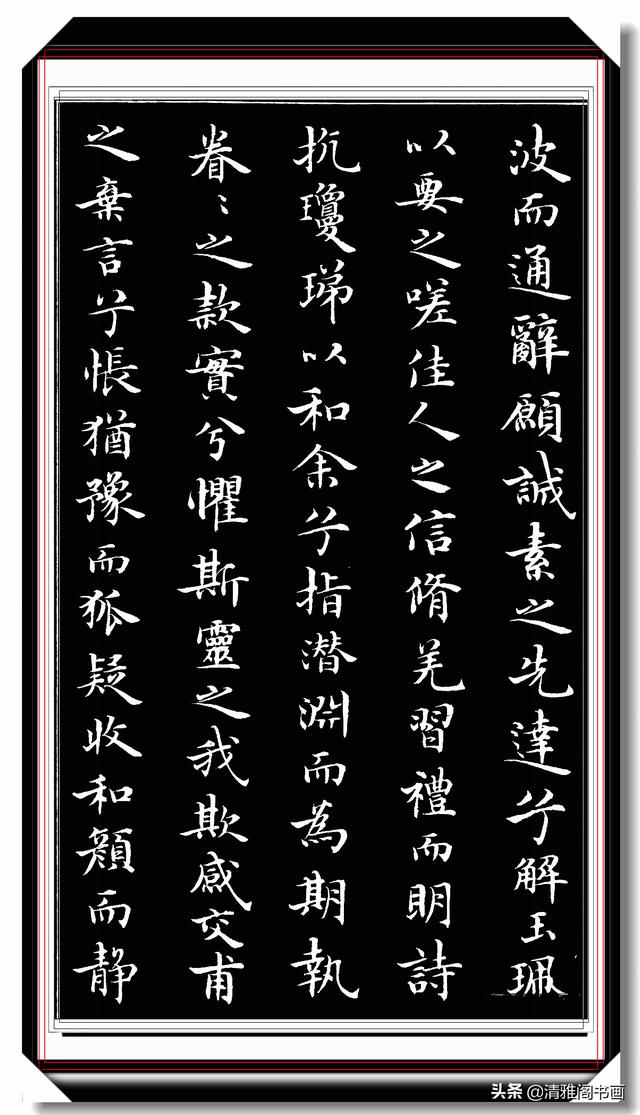 波而通辭願誠素之先達兮解玉珮
以要之嗟佳人之信脩羌習禮而明詩
抗瓊珶以和余兮指潜淵而為期執
眷〻之款實兮懼斯靈之我欺感交甫
之棄言兮悵猶豫而狐疑收和顏而静
头条 @清雅阁书画